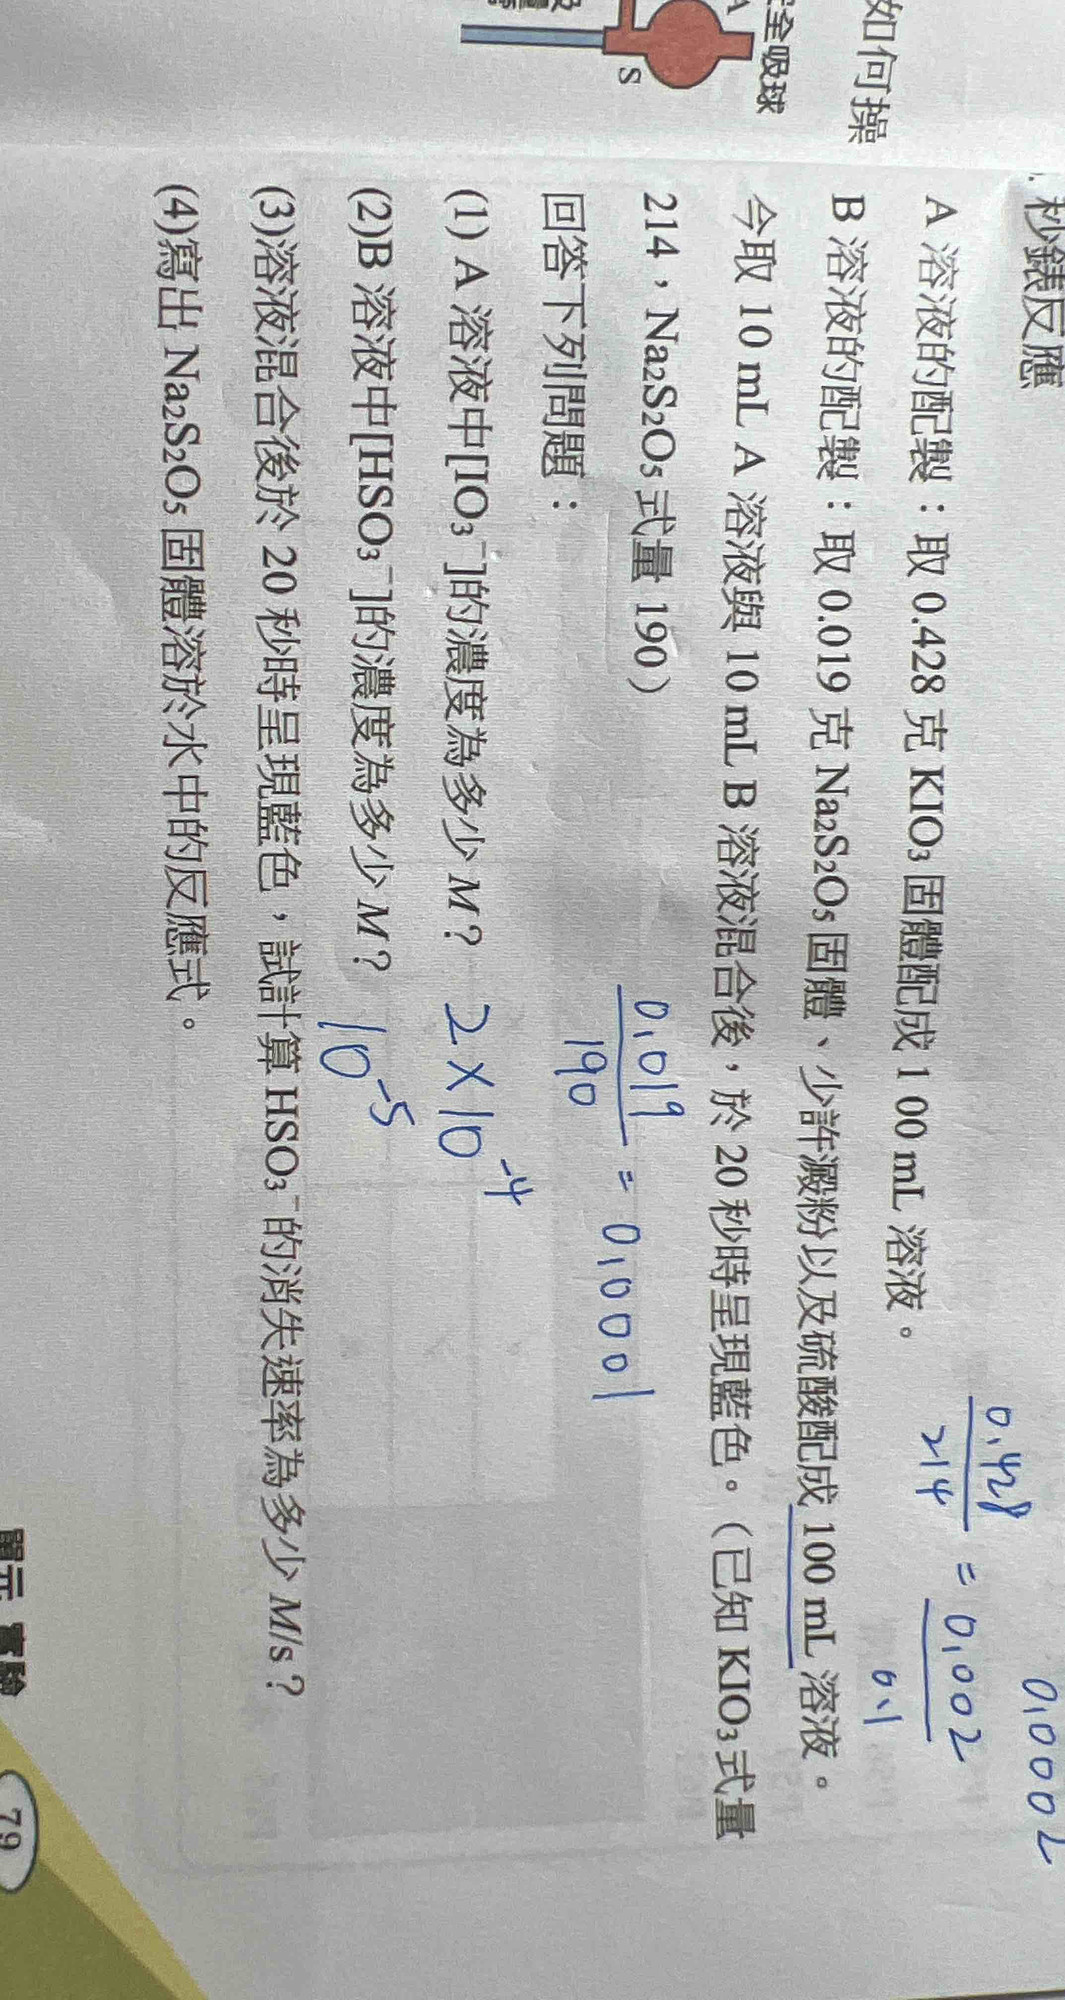 如何操
安全吸球
A
S
秒錶反應
A 溶液的配製：取 0.428 克 KIO₃ 固體配成 1 00 mL 溶液。
B 溶液的配製：取 0.019 克 Na₂S₂O₅ 固體、少許澱粉以及硫酸配成 100 mL 溶液。
今取 10 mL A 溶液與 10 mL B 溶液混合後，於 20 秒時呈現藍色。（已知 KIO₃ 式量
214，Na₂S₂O₅ 式量 190）
回答下列問題：
(1) A 溶液中[IO₃⁻]的濃度為多少 M？ 2×10⁻⁴
(2)B 溶液中[HSO₃⁻]的濃度為多少 M？ 10⁻⁵
(3)溶液混合後於 20 秒時呈現藍色，試計算 HSO₃⁻ 的消失速率為多少 M/s？
(4)寫出 Na₂S₂O₅ 固體溶於水中的反應式。
0.0002
0.428
214
= 0.002
0.1
0.019
190
= 0.0001
單元 實驗
79